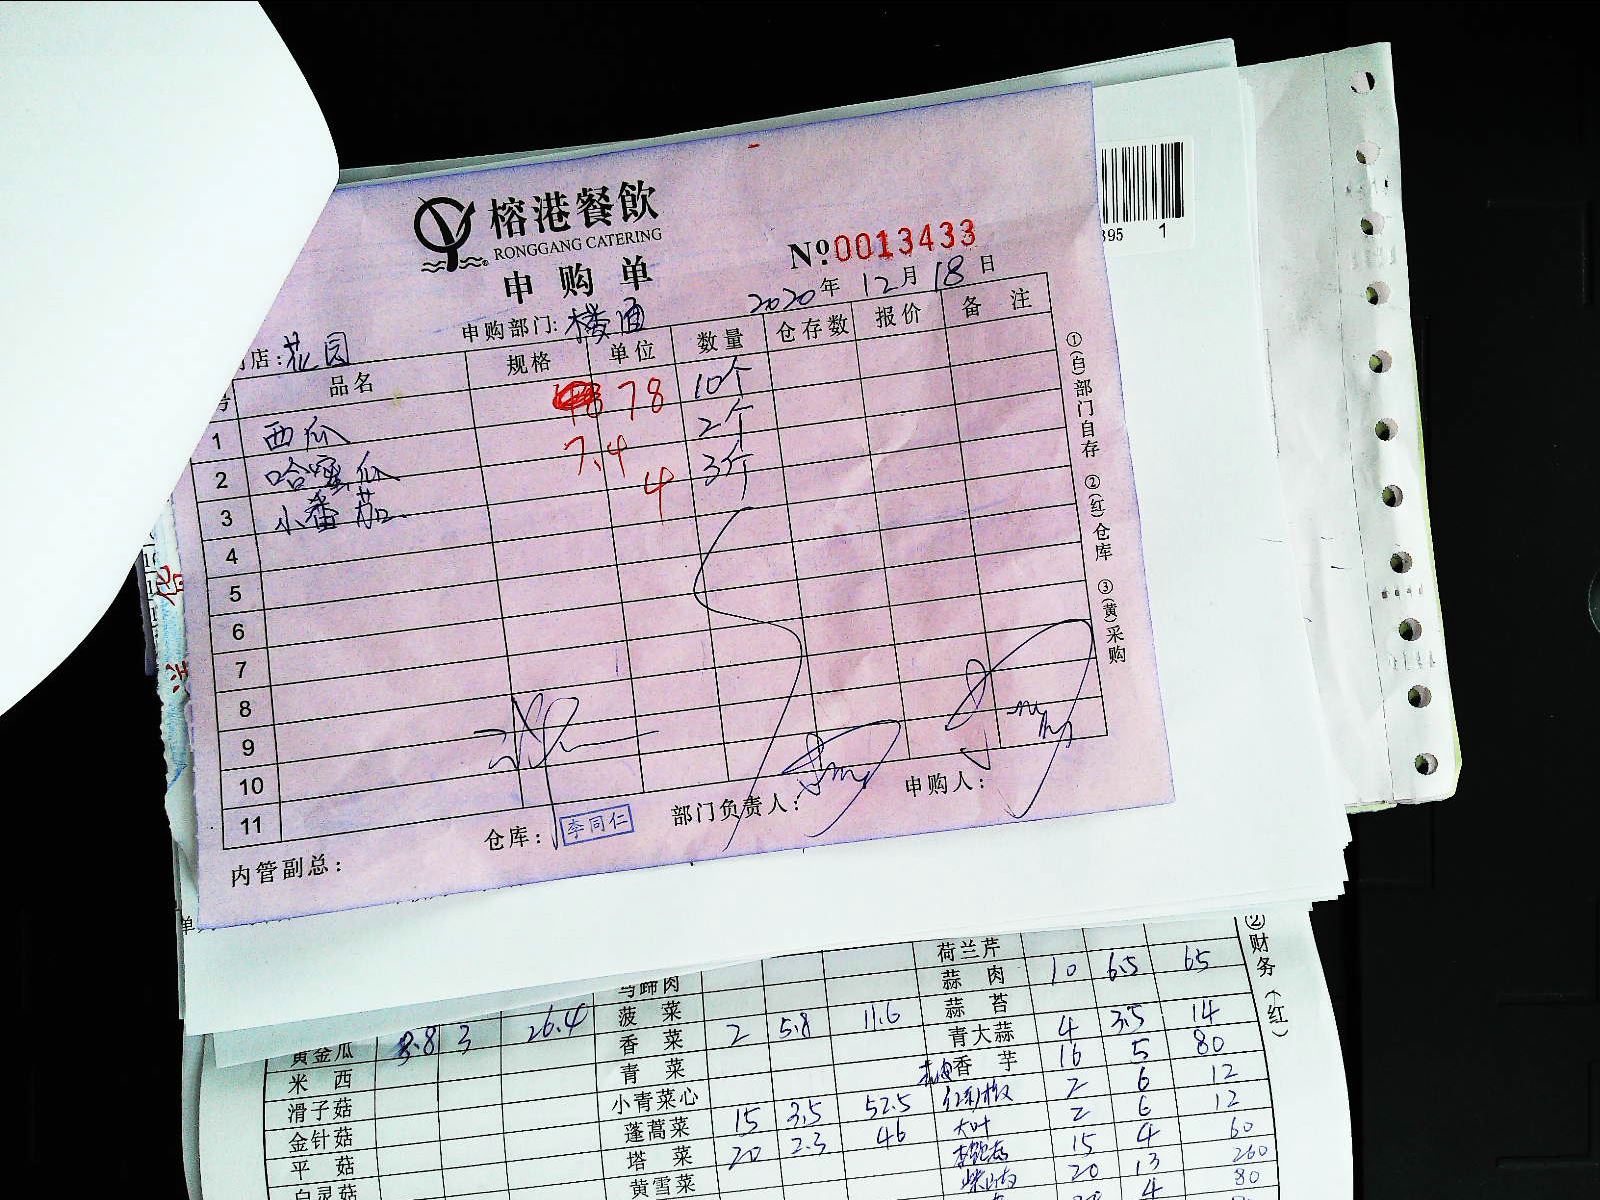 榕港餐飲
RONGGANG CATERING
申购单
№0013433
2020年12月18日
店:花园 申购部门:楼面
品名 规格 单位 数量 仓存数 报价 备注
1 西瓜 78 10个
2 哈密瓜 7.4 2个
3 小番茄 4 3斤
4
5
6
7
8
9
10
11
内管副总: 仓库: 李同仁 部门负责人: 申购人:
①(白)部门自存 ②(红)仓库 ③(黄)采购
395 1
②财务(红)
荷兰芹
马蹄肉 蒜肉 10 6.5 65
菠菜 蒜苔
黄金瓜 8.8 3 26.4 香菜 2 5.8 11.6 青大蒜 4 3.5 14
米西 青菜 香芋 16 5 80
滑子菇 小青菜心 2 6 12
金针菇 蓬蒿菜 15 3.5 52.5 大叶 2 6 12
平菇 塔菜 20 2.3 46 15 4 60
白灵菇 黄雪菜 20 13 260
4 80